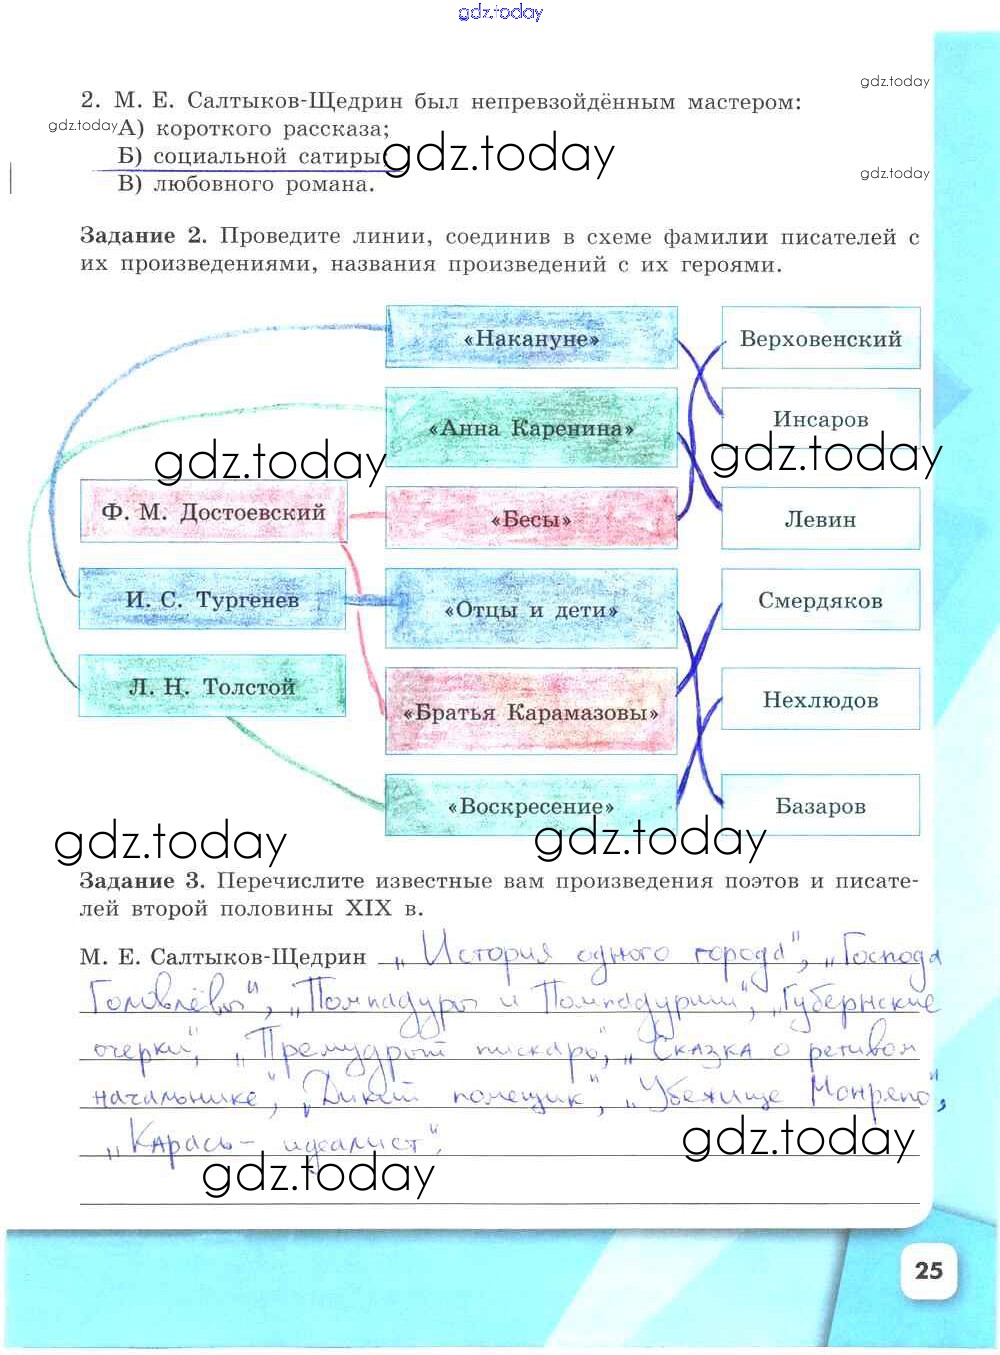 gdz.today
gdz.today
2. М. Е. Салтыков-Щедрин был непревзойдённым мастером:
gdz.today
А) короткого рассказа;
Б) социальной сатиры;
gdz.today
gdz.today
В) любовного романа.
Задание 2. Проведите линии, соединив в схеме фамилии писателей с
их произведениями, названия произведений с их героями.
«Накануне»
Верховенский
«Анна Каренина»
Инсаров
gdz.today
gdz.today
Ф. М. Достоевский
«Бесы»
Левин
И. С. Тургенев
«Отцы и дети»
Смердяков
Л. Н. Толстой
«Братья Карамазовы»
Нехлюдов
«Воскресение»
Базаров
gdz.today
gdz.today
Задание 3. Перечислите известные вам произведения поэтов и писате-
лей второй половины XIX в.
М. Е. Салтыков-Щедрин „История одного города", „Господа
Головлёвы", „Помпадуры и Помпадурши", „Губернские
очерки", „Премудрый пискарь", „Сказка о ретивом
начальнике", „Дикий помещик", „Убежище Монрепо",
„Карась-идеалист".
gdz.today
gdz.today
25